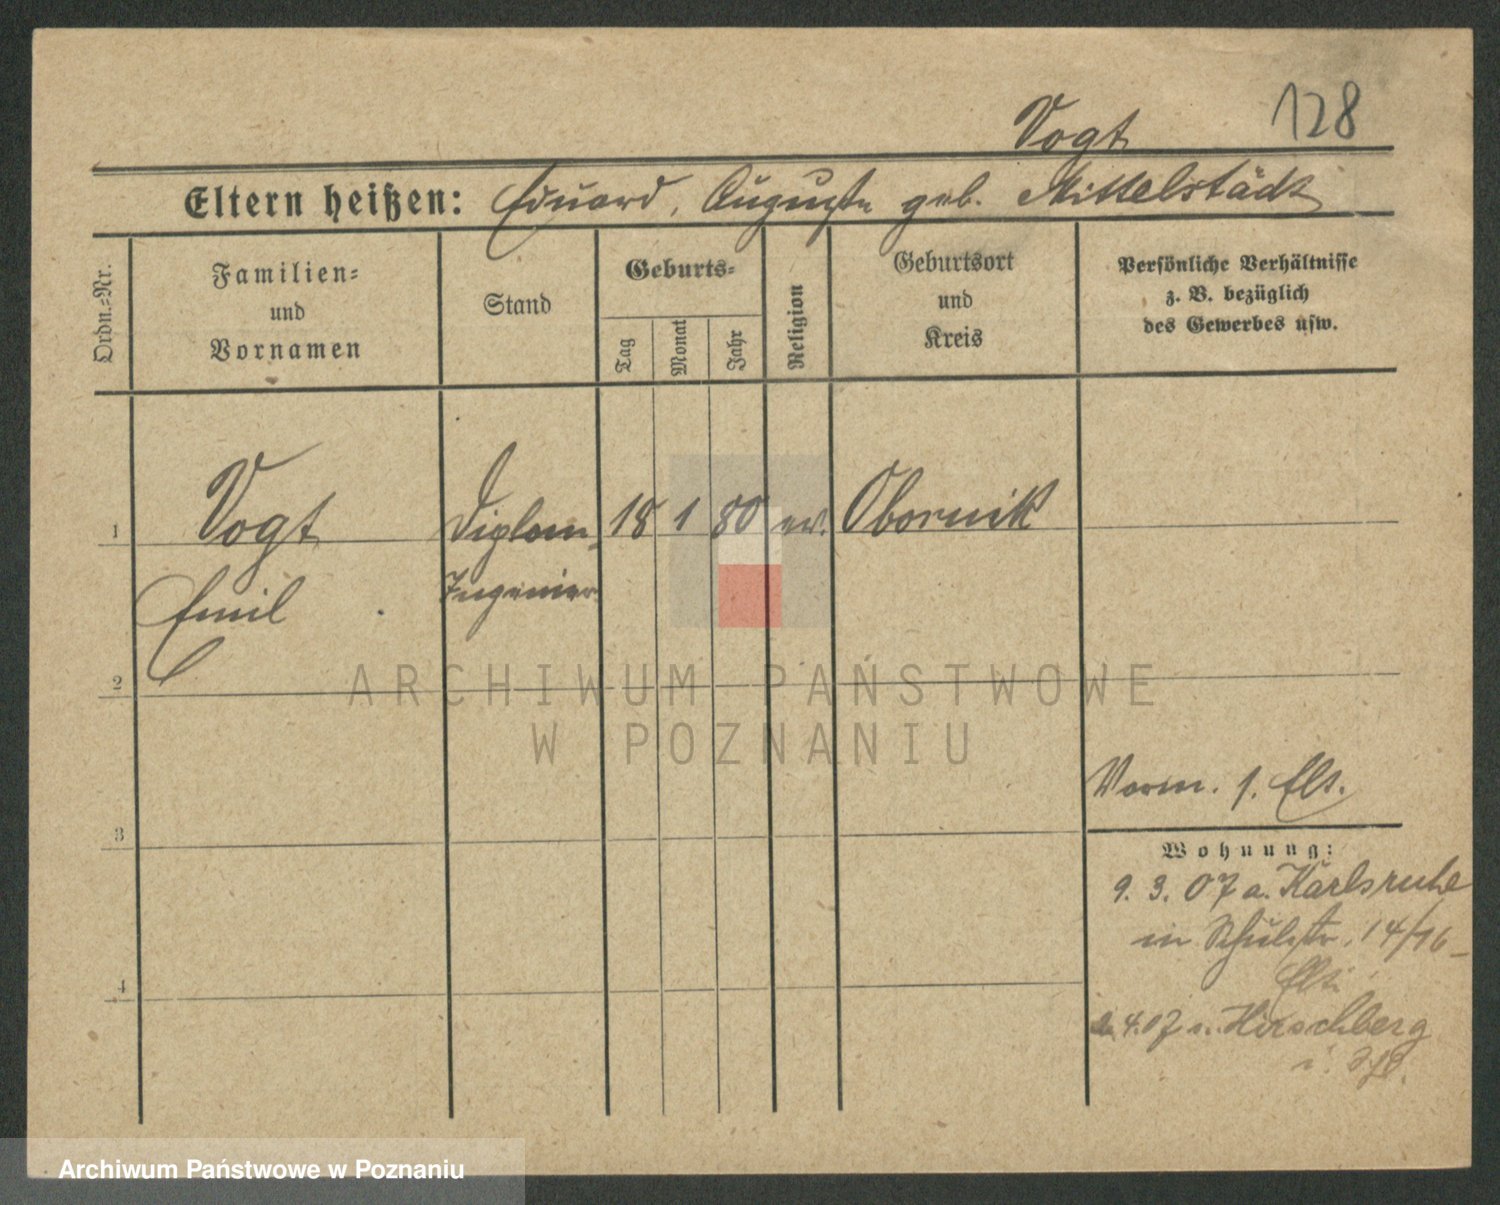 128
Vogt
Eltern heißen: Eduard, Auguste geb. Mittelstädt
Ordn.=Nr.
Familien=
und
Vornamen
Stand
Geburts=
Tag
Monat
Jahr
Religion
Geburtsort
und
Kreis
Persönliche Verhältnisse
z. B. bezüglich
des Gewerbes usw.
1 Vogt Diplom. 18 1 80 ev. Obornik
Emil Ingenier
2
ARCHIWUM PAŃSTWOWE
W POZNANIU
Vorm. 1. Elt.
3
Wohnung:
9. 3. 07 a. Karlsruhe
in Schulstr. 14/16
Elt.
4
4.07 n. Hirschberg
Archiwum Państwowe w Poznaniu